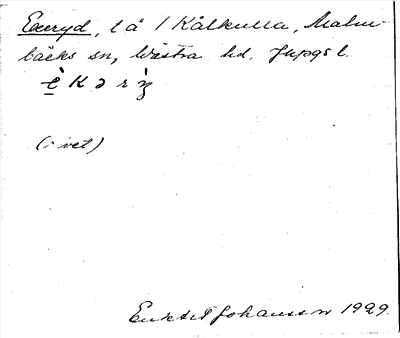 Ekeryd, l å / Kålkulla, Malm-
bäcks sn, Västra hd. Jkpgs l.
è K ə r ỳ
(: vet)
Enl A Johansson 1929.